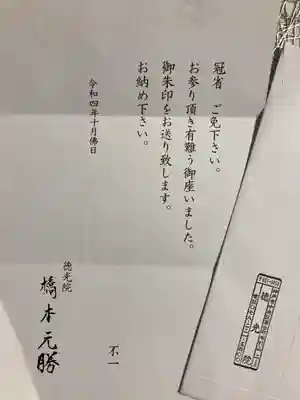 冠省 ご免下さい。
お参り頂き有難う御座いました。
御朱印をお送り致します。
お納め下さい。
不一
令和四年十月佛日
徳光院
橋本元勝
徳光院